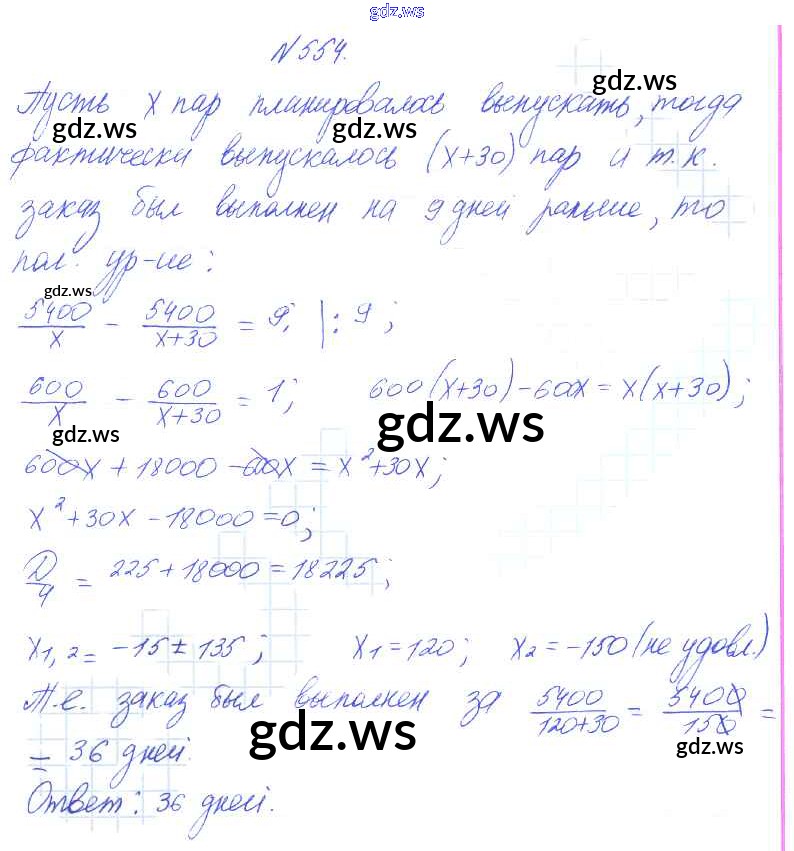 gdz.ws
N 554.
Пусть x пар планировалось выпускать, тогда
gdz.ws gdz.ws gdz.ws
фактически выпускалось (x+30) пар и т.к.
заказ был выполнен на 9 дней раньше, то
пол. ур-ие:
gdz.ws
5400/x - 5400/(x+30) = 9; |:9;
600/x - 600/(x+30) = 1; 600(x+30)-600x = x(x+30);
gdz.ws gdz.ws
600x + 18000 - 600x = x²+30x;
x²+30x-18000=0;
D/4 = 225+18000=18225;
x1,2 = -15 ± 135; x1=120; x2=-150 (не удовл.)
Т.е. заказ был выполнен за 5400/(120+30) = 5400/150 =
gdz.ws gdz.ws
= 36 дней.
Ответ: 36 дней.
gdz.ws